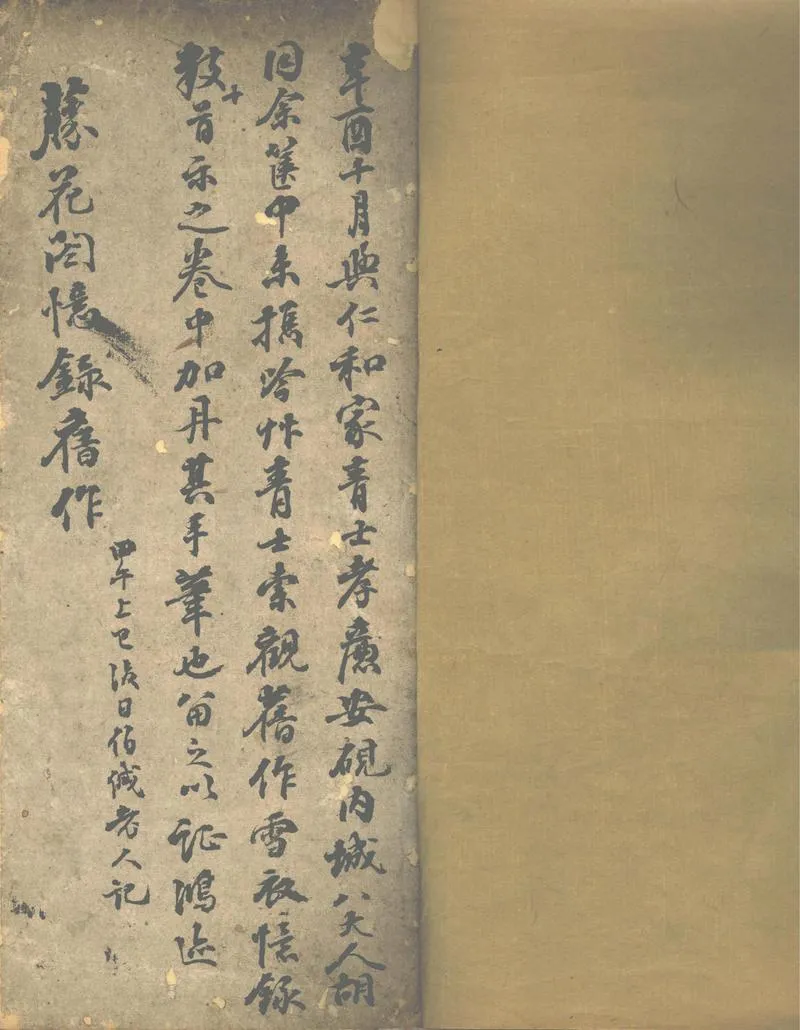 辛酉十月與仁和家青士孝廉安硯內城八大人胡
同余篋中未攜吟艸青士索觀舊作雪衣憶錄
數十首示之卷中加丹其手筆也留之以證鴻迹
藤花閣憶錄舊作
午上巳後日伯 老人記